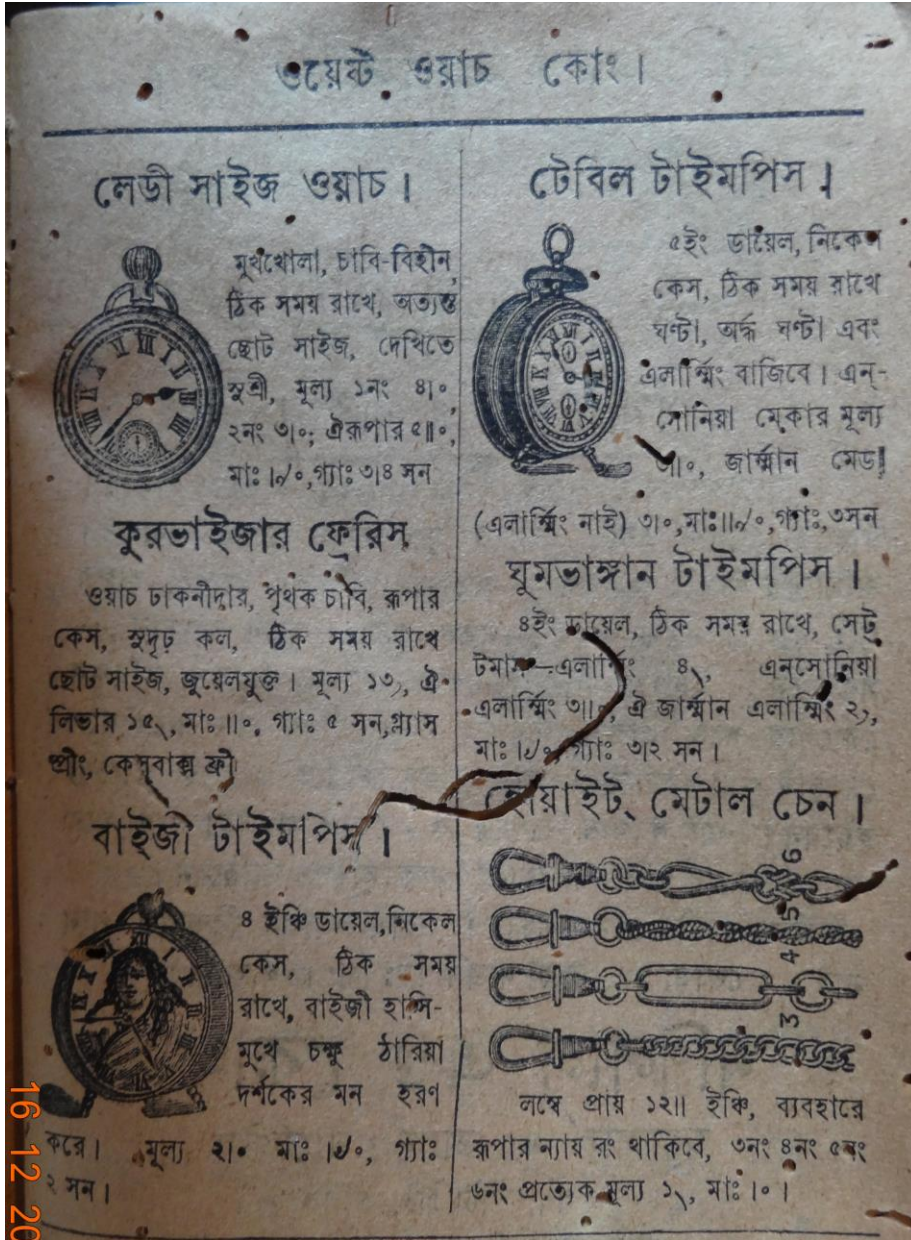 ওয়েষ্ট ওয়াচ কোং।
লেডী সাইজ ওয়াচ।
মুখখোলা, চাবি-বিহীন,
ঠিক সময় রাখে, অত্যন্ত
ছোট সাইজ, দেখিতে
সুশ্রী, মূল্য ১নং ৪৷৹,
২নং ৩৷৹; ঐরূপার ৫৷৷৹,
মাঃ ৷৵৹, গ্যাঃ ৩৷৪ সন
কুরভাইজার ফ্রেরিস
ওয়াচ ঢাকনীদার, পৃথক চাবি, রূপার
কেস, সুদৃঢ় কল, ঠিক সময় রাখে
ছোট সাইজ, জুয়েলযুক্ত। মূল্য ১৩৲, ঐ
লিভার ১৫৲, মাঃ ৷৷৹, গ্যাঃ ৫ সন, গ্ল্যাস
স্প্রীং, কেসবাক্স ফ্রী
বাইজী টাইমপিস।
৪ ইঞ্চি ডায়েল, নিকেল
কেস, ঠিক সময়
রাখে, বাইজী হাসি-
মুখে চক্ষু ঠারিয়া
দর্শকের মন হরণ
করে। মূল্য ২৷৹ মাঃ ৷৶৹, গ্যাঃ
২ সন।
টেবিল টাইমপিস।
৫ইং ডায়েল, নিকেল
কেস, ঠিক সময় রাখে
ঘণ্টা, অর্দ্ধ ঘণ্টা এবং
এলার্ম্মিং বাজিবে। এন্-
সোনিয়া মেকার মূল্য
জার্ম্মান মেড
(এলার্ম্মিং নাই) ৩৷৹, মাঃ৷৷৵৹, গ্যাঃ, ৩সন
ঘুমভাঙ্গান টাইমপিস।
৪ইং ডায়েল, ঠিক সময় রাখে, সেট্
এলার্ম্মিং ৪৲, এন্সোনিয়া
এলার্ম্মিং ৩৷৷৹, ঐ জার্ম্মান এলার্ম্মিং ২৲,
মাঃ ৷৶৹ গ্যাঃ ৩৷২ সন।
হোয়াইট্ মেটাল চেন।
6
5
4
3
লম্বে প্রায় ১২৷৷ ইঞ্চি, ব্যবহারে
রূপার ন্যায় রং থাকিবে, ৩নং ৪নং ৫নং
৬নং প্রত্যেক মূল্য ১৲, মাঃ ৷৹।
16 12 20